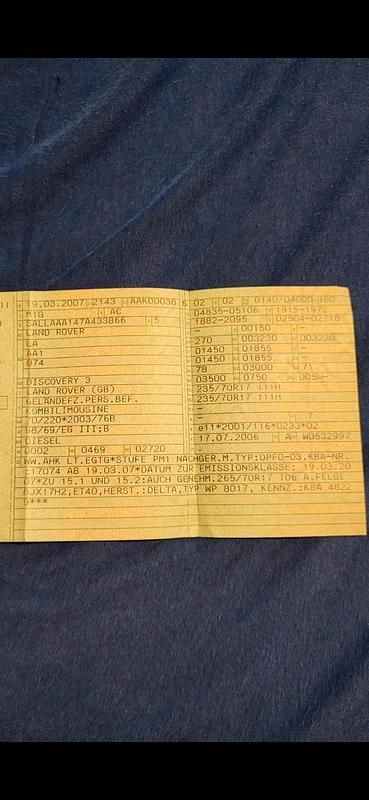 19.03.2007 2143 AAK00038 6
M1G AC
SALLAAA147A433866 5
LAND ROVER
LA
AA1
074
DISCOVERY 3
LAND ROVER (GB)
GELÄNDEFZ.PERS.BEF.
KOMBILIMOUSINE
70/220*2003/76B
98/69/EG III;B
DIESEL
0002 0469 02720
02 02 0140/04000 180
04835-05106 1915-1972
1882-2095 02504-02718
- 00150 -
270 003230 003230
01450 01855 -
01450 01855 -
78 03000 71
03500 0750
235/70R17 111H
235/70R17 111H
-
- 7
e11*2001/116*0233*02
17.07.2006 A WD532997
-
WW.AHK LT.EGTG*STUFE PM1 NACHGER.M.TYP:DPFO-03.KBA-NR.
:17074 AB 19.03.07*DATUM ZUR EMISSIONSKLASSE: 19.03.20
07*ZU 15.1 UND 15.2:AUCH GENEHM.265/70R17 106 A.FELGE
8JX17H2,ET40,HERST.:DELTA,TYP WP 8017, KENNZ.:KBA 4822
9***